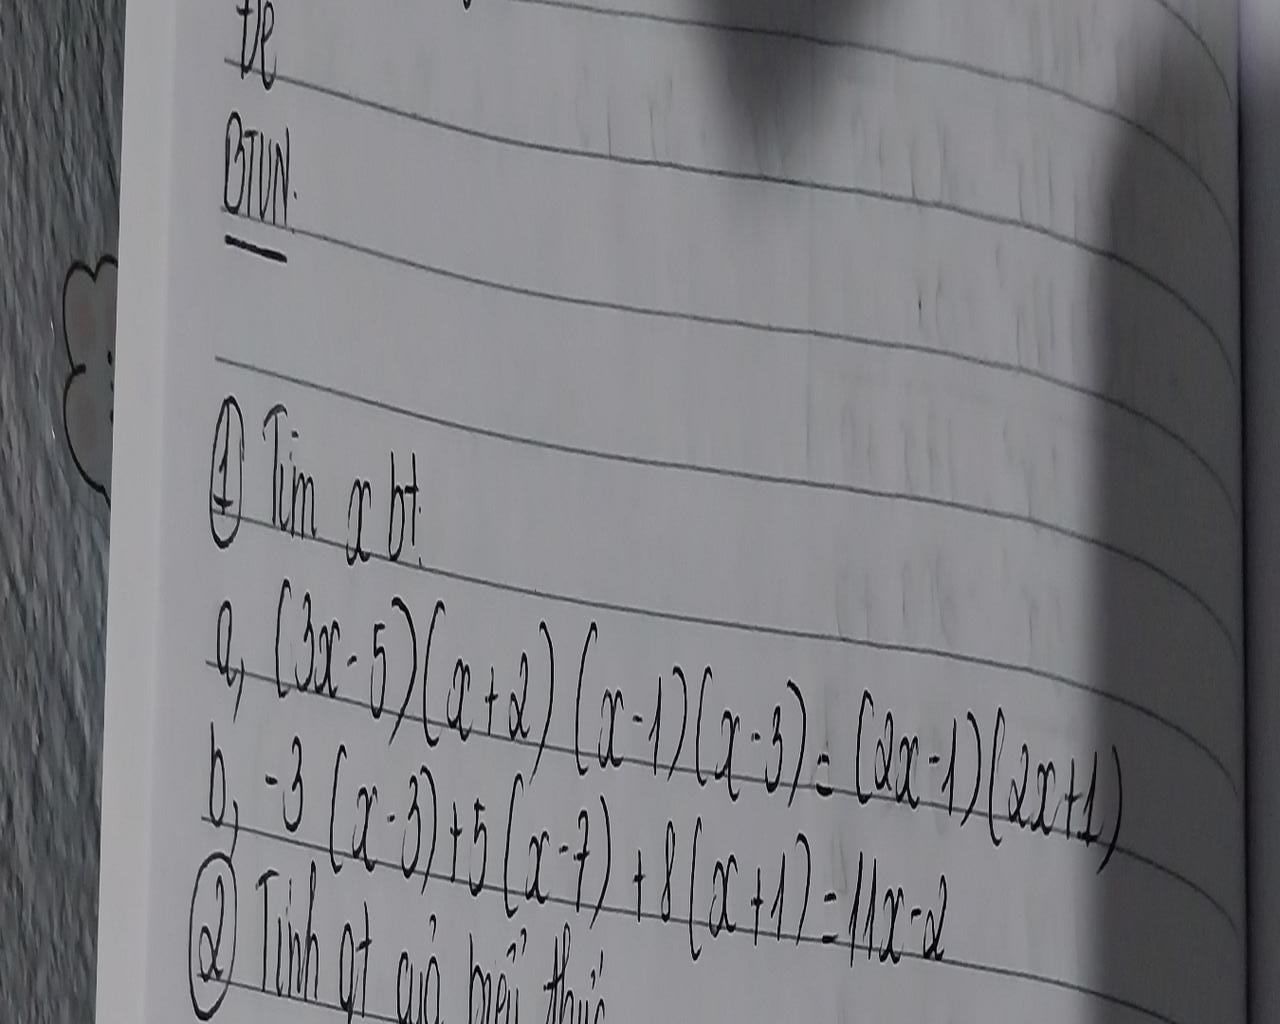 BTVN.
① Tìm x bt.
a, (3x-5)(x+2) (x-1)(x-3) = (2x-1)(2x+1)
b, -3 (x-3)+5 (x-7) + 8 (x+1) = 11x-2
② Tính gt của biểu thức